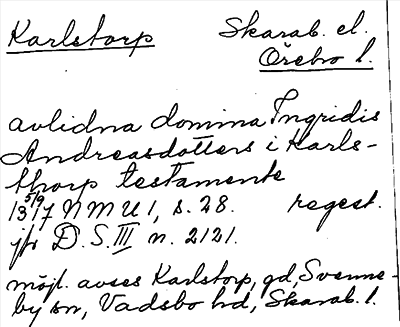 Karlstorp Skarab. el.
Örebro l.
avlidna domina Ingridis
Andreasdotters i Karls-
thorp testamente
13 5/9 17 NMU 1, s. 28. regest.
jfr D.S. III n. 2121.
möjl. avses Karlstorp, gd, Svenne-
by sn, Vadsbo hd, Skarab. l.